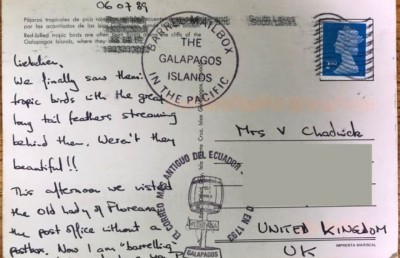 06 07 89
Pájaros tropicales de pico
por los acantilados de las
Red-billed tropic birds are often
Galapagos Islands, where they
BARREL MAILBOX
THE
GALAPAGOS
ISLANDS
IN THE PACIFIC
Liebchen,
We finally saw them:
tropic birds with the great
long tail feathers streaming
behind them. Weren't they
beautiful!!
This afternoon we visited
the Old Lady of Floreana,
the post office without a
postbox. Now I am "barrelling"
Mrs V Chadwick
EL CORREO MAS ANTIGUO DEL ECUADOR
EN 1793
GALAPAGOS
UNITED KINGDOM
UK
IMPRENTA MARISCAL